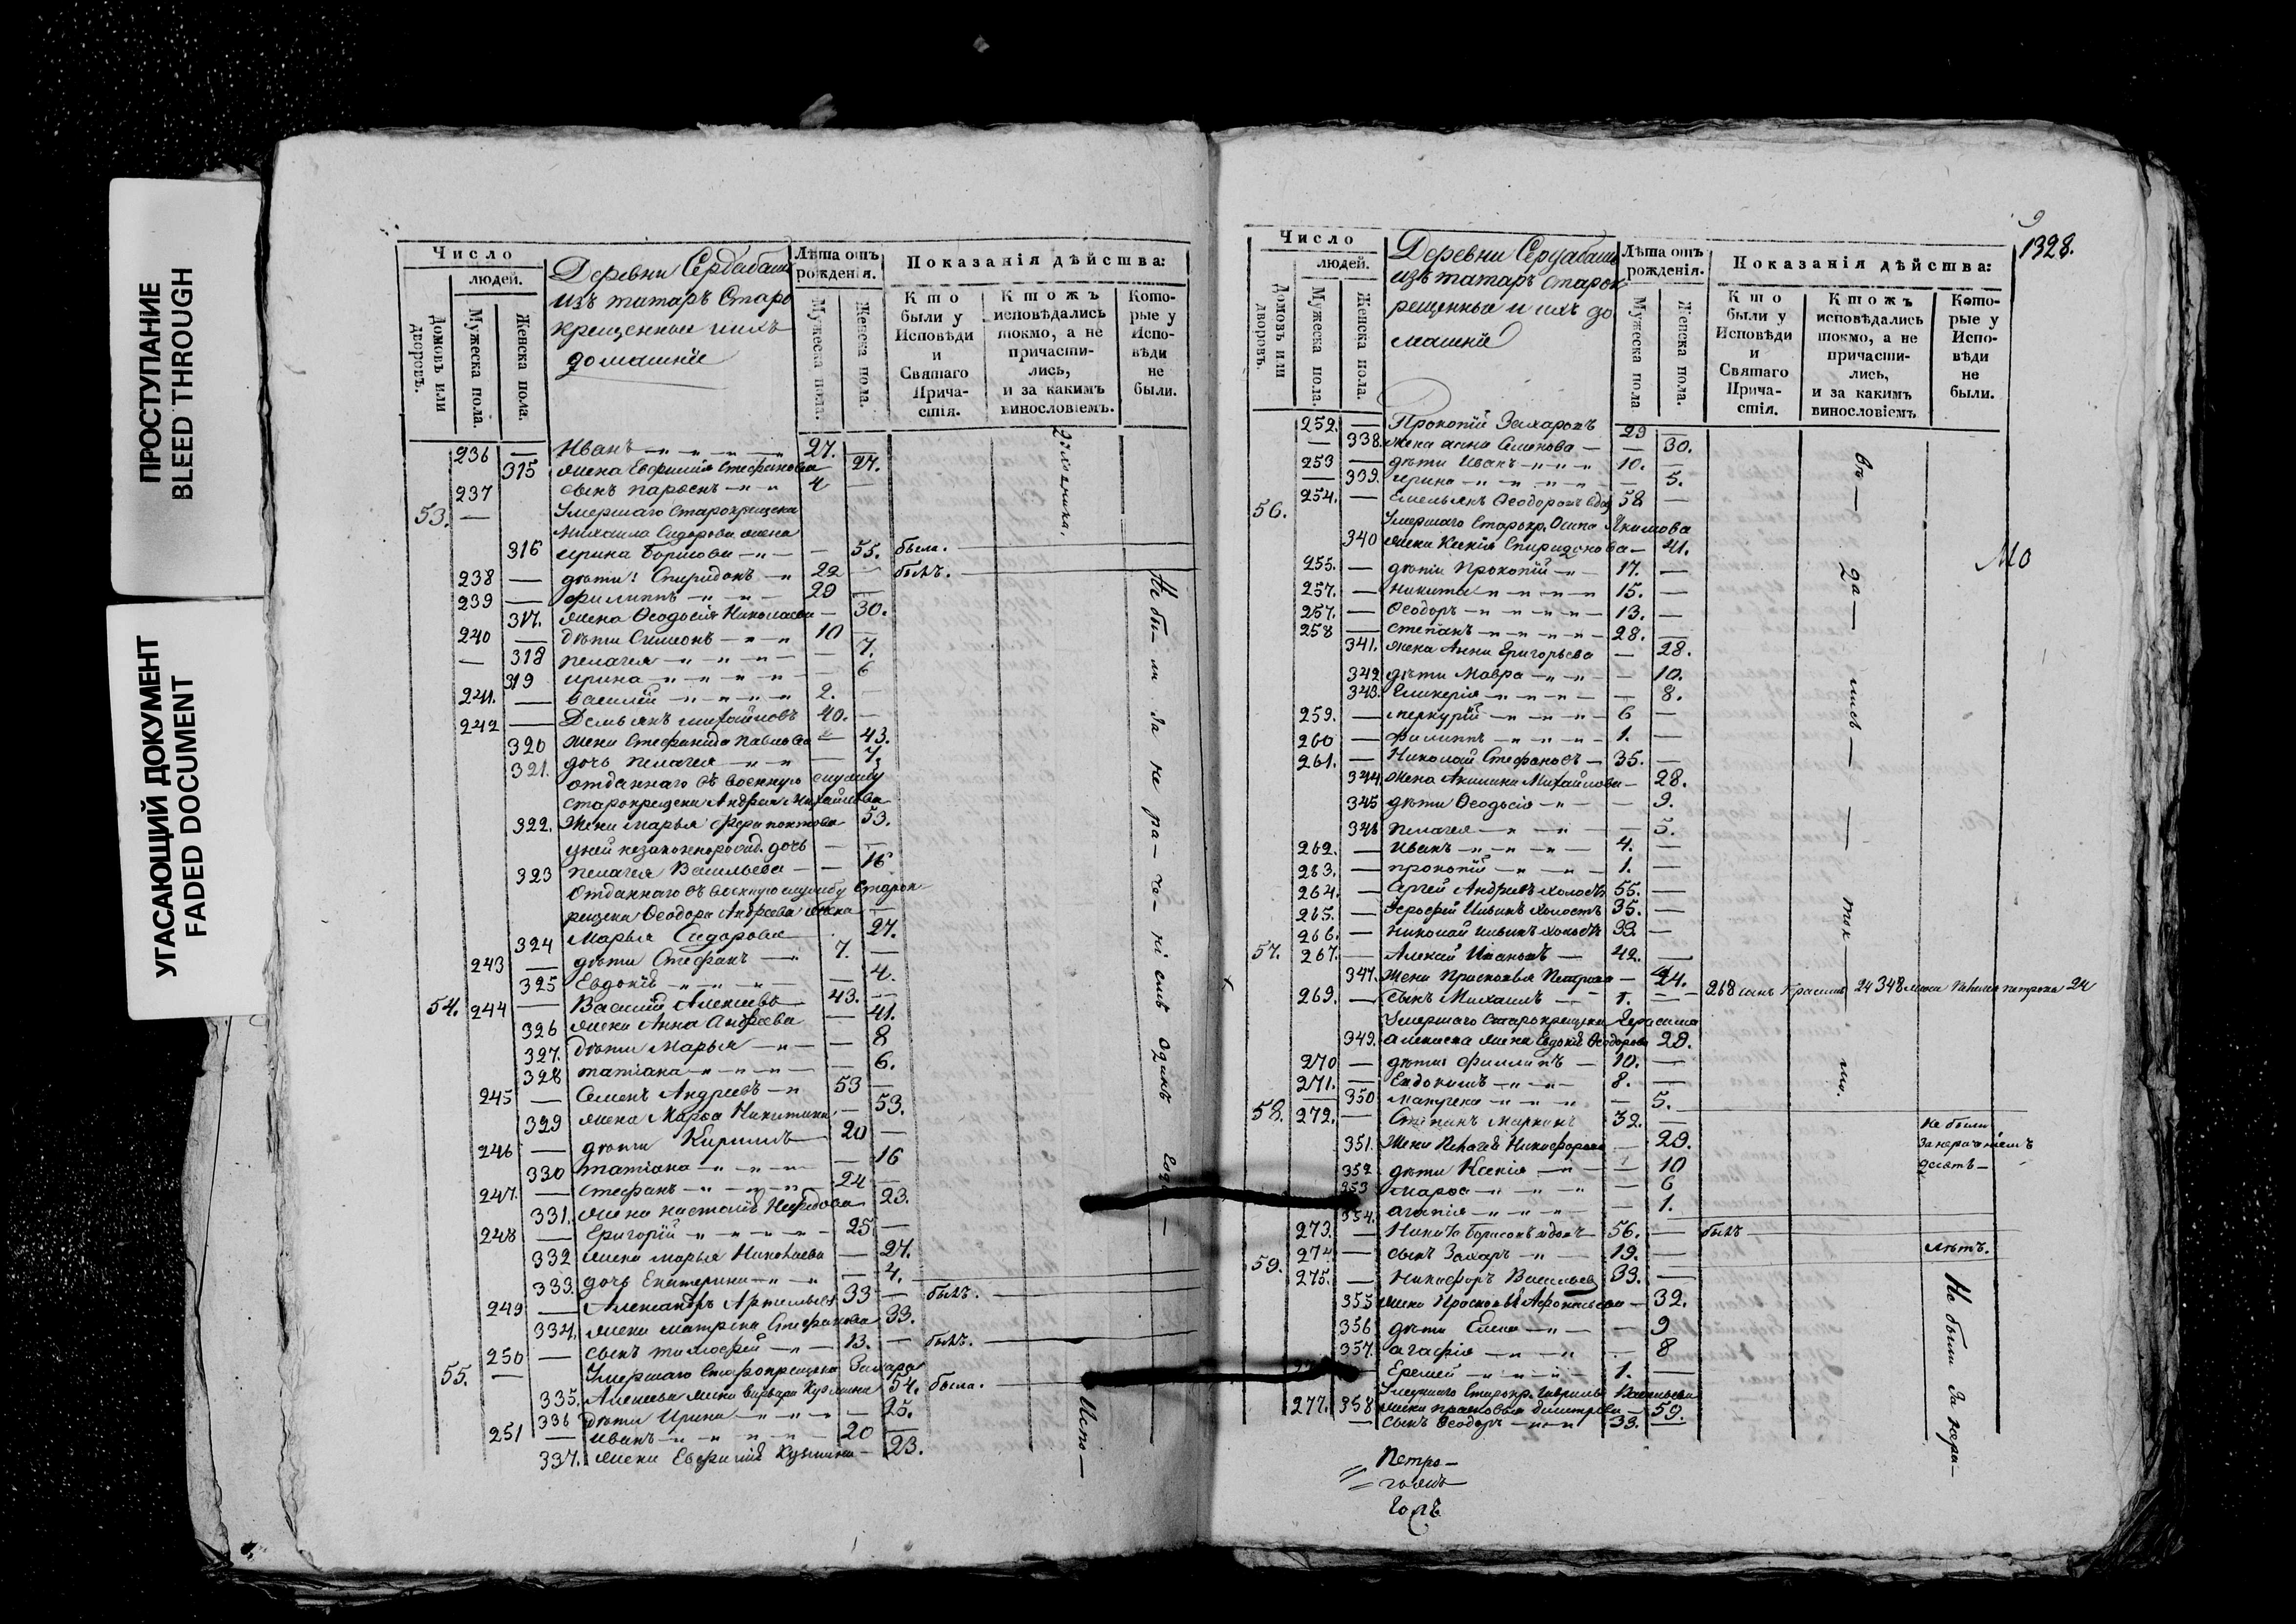 ПРОСТУПАНИЕ
BLEED THROUGH
УГАСАЮЩИЙ ДОКУМЕНТ
FADED DOCUMENT
Число
людей.
Домовъ или дворовъ.
Мужеска пола.
Женска пола.
Деревни Сердабашъ
изъ татаръ Старо
крещенныя и ихъ
домашнїе
Лѣта отъ рожденїя.
Мужеска пола.
Женска пола.
Показанїя дѣйства:
Кто были у Исповѣди и Святаго Прича-стїя.
Ктожъ исповѣдались токмо, а не причасти-лись, и за какимъ винословїемъ.
Кото-рые у Испо-вѣди не были.
236 — Иванъ 27. —
315 жена Евфимия Стефанова 27.
237 сынъ Парѳенъ 4 —
53. — Умершаго Старокрещена
Михаила Сидорова жена
316 Ирина Борисова — 55. была.
238 — дѣти: Спиридонъ 22 — былъ.
239 — Филиппъ 29 —
317. жена Ѳеодосія Николаева — 30.
240 — дѣти Симеонъ 10 —
— 318 Пелагея — 7.
319 Ирина — 6
241. — Василїй 2. —
242 — Демьянъ Михайловъ 40. —
320 жена Стефанида Павлова — 43.
321. дочь Пелагея — 7.
отданнаго въ военную службу
старокрещена Андрея Михайлова
322. жена Марья 53.
у ней незаконнорожд. дочь —
323 Пелагея Васильева — 16
Отданнаго въ военную службу Старок
рещена Ѳеодора Андреева жена —
324 Марья Сидорова 27.
243 — дѣти Стефанъ 7. —
325 Евдокїя — 4.
54. 244 — Василїй Алексѣевъ 43. —
326 жена Анна Андреева — 41.
327. дѣти Марья — 8
328 Татіана — 6.
245 — Семенъ Андреевъ 53 —
329 жена Марѳа Никитина — 53.
246 — дѣти Кирилъ 20 —
330 Татіана — 16
247. — Стефанъ 24 —
331. жена Настасїя 23.
248 — Григорїй 25 —
332 жена Марья Николаева — 27.
333. дочь Екатерина — 4.
249 — Александръ Артемьевъ 33 — былъ.
334. жена Матрена Стефанова 33.
250 — сынъ Тимофей 13. — былъ.
55. — Умершаго Старокрещена Захара
335. Алексѣева жена Варвара Кузмина 54. была.
336 дѣти Ирина — 25.
251 — Иванъ 20 —
337. жена Евфимїя Кузмина — 23.
Не бы — ли за не ра — че — ні емъ одинъ годъ —
Испо —
1328.
Число
людей.
Домовъ или дворовъ.
Мужеска пола.
Женска пола.
Деревни Сердабашъ
изъ татаръ старок
рещенные и ихъ до
машнїе
Лѣта отъ рожденїя.
Мужеска пола
Женска пола.
Показанїя дѣйства:
Кто были у Исповѣди и Святаго Прича-стїя.
Ктожъ исповѣдались токмо, а не причасти-лись, и за какимъ винословїемъ
Кото-рые у Испо-вѣди не были.
252. — Прокопїй Захаровъ 29 —
— 338. жена Анна Семенова — 30.
253 — дѣти Иванъ 10. —
— 339. Ирина — 5.
254. — Емельянъ Ѳеодоровъ вдов 58 —
56. Умершаго Старокр. Осипа Якимова
340 жена Ксенїя Спиридонова — 41.
255. — дѣти Прокопїй 17. —
257. — Никита 15. —
257. — Ѳеодоръ 13. —
258 — Степанъ 28. —
341. жена Анна Григорьева — 28.
342 дѣти Мавра — 10.
343. Гликерїя — 8.
259. — Меркурїй 6 —
260 — Филиппъ 1. —
261. — Николай Стефановъ 35. —
344. жена Акилина Михайлова — 28.
345 дѣти Ѳеодосїя — 9.
346 Пелагея — 5.
262. — Иванъ 4. —
263. — Прокопїй 1. —
264. — Сергей Андреевъ холостъ 55. —
265. — Ерофей Ильинъ холостъ 35. —
266. — Николай Ильинъ холостъ 32 —
57. 267. — Алексїй Ивановъ 42. —
347. жена Прасковья Петрова — 44.
269. — сынъ Михаилъ 1. — 268 сынъ Герасимъ 24 348 жена Пелагея Петрова 24
Умершаго старокрещена Герасима
349. Алексеева жена Евдокїя Ѳеодорова 29.
270 — дѣти Филиппъ 10. —
271. — Евдокимъ 8. —
350 Матрена — 5.
58. 272. — Степанъ Маркинъ 32. —
351. жена Пелагея Никифорова — 29.
352 дѣти Ксенїя — 10
353 Марѳа — 6
354. Агапїя — 1.
Не были
за нерачениемъ
десять —
273. — Никита Борисовъ вдовъ 56. — былъ
274 — сынъ Захаръ 19. — лѣтъ.
59. 275. — Никифоръ Васильевъ 39. —
355 жена Прасковья Афонасьева — 32.
356 дѣти Елена — 9
357. Агафїя — 8
Еремей 1. —
Умершаго Старокр. Гаврилы Васильева
277. 358 жена Прасковья Димитрева — 59.
— сынъ Ѳеодоръ 39. —
въ — да — лисъ — — ток — мо.
Не были за нера —
Петро —
Мо